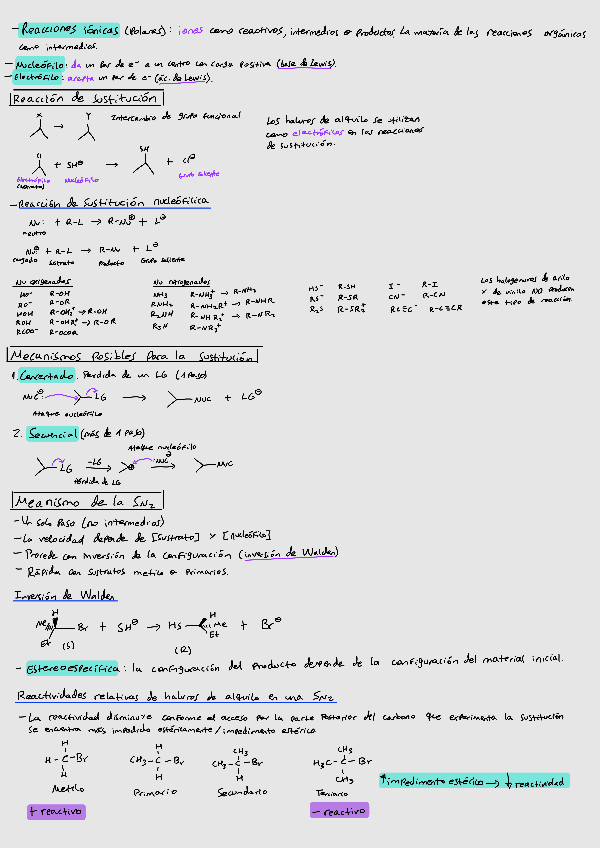 - Reacciones iónicas (Polares): iones como reactivos, intermedios o productos. La mayoría de las reacciones orgánicas
como intermedios.
- Nucleófilo: da un par de e⁻ a un centro con carga positiva (base de Lewis).
- Electrófilo: acepta un par de e⁻ (ác. de Lewis).
Reacción de Sustitución
X → Y Intercambio de grupo funcional
Los haluros de alquilo se utilizan
como electrófilos en las reacciones
de sustitución.
Cl + SH⊖ → SH + Cl⊖
Electrófilo Nucleófilo Grupo saliente
(sustrato)
- Reacción de Sustitución nucleófilica
Nu: + R-L → R-Nu⊕ + L⊖
neutro
Nu⊖ + R-L → R-Nu + L⊖
cargado Sustrato Producto Grupo saliente
Nu oxigenados
HO⁻ R-OH
RO⁻ R-OR
HOH R-OH₂⁺ → R-OH
ROH R-OHR⁺ → R-OR
RCOO⁻ R-OCOR
Nu nitrogenados
NH₃ R-NH₃⁺ → R-NH₂
RNH₂ R-NH₂R⁺ → R-NHR
R₂NH R-NHR₂⁺ → R-NR₂
R₃N R-NR₃⁺
HS⁻ R-SH I⁻ R-I
RS⁻ R-SR CN⁻ R-CN
R₂S R-SR₂⁺ RC≡C⁻ R-C≡CR
Los halogenuros de arilo
y de vinilo NO producen
este tipo de reacción.
Mecanismos Posibles Para la sustitución
1. Concertado. Pérdida de un LG (1 paso)
NUC:⊖ LG → NUC + LG⊖
Ataque nucleófilo
2. Secuencial (más de 1 paso)
Ataque nucleófilo
LG -LG → ⊕ :NUC → NUC
Pérdida de LG
Meanismo de la SN₂
- Un solo paso (no intermedios)
- La velocidad depende de [sustrato] y [nucleófilo]
- Procede con inversión de la configuración (inversión de Walden)
- Rápida con sustratos metilo o primarios.
Inversión de Walden
H Me Et Br + SH⊖ → HS H Me Et + Br⊖
(S) (R)
- Estereoespecífica: la configuración del producto depende de la configuración del material inicial.
Reactividades relativas de haluros de alquilo en una SN₂
- La reactividad disminuye conforme el acceso por la parte posterior del carbono que experimenta la sustitución
se encuentra más impedido estéricamente/impedimento estérico
H H CH₃ CH₃
H-C-Br CH₃-C-Br CH₃-C-Br H₃C-C-Br
H H H CH₃
Metilo Primario Secundario Terciario
↑ impedimento estérico → ↓ reactividad
+ reactivo - reactivo